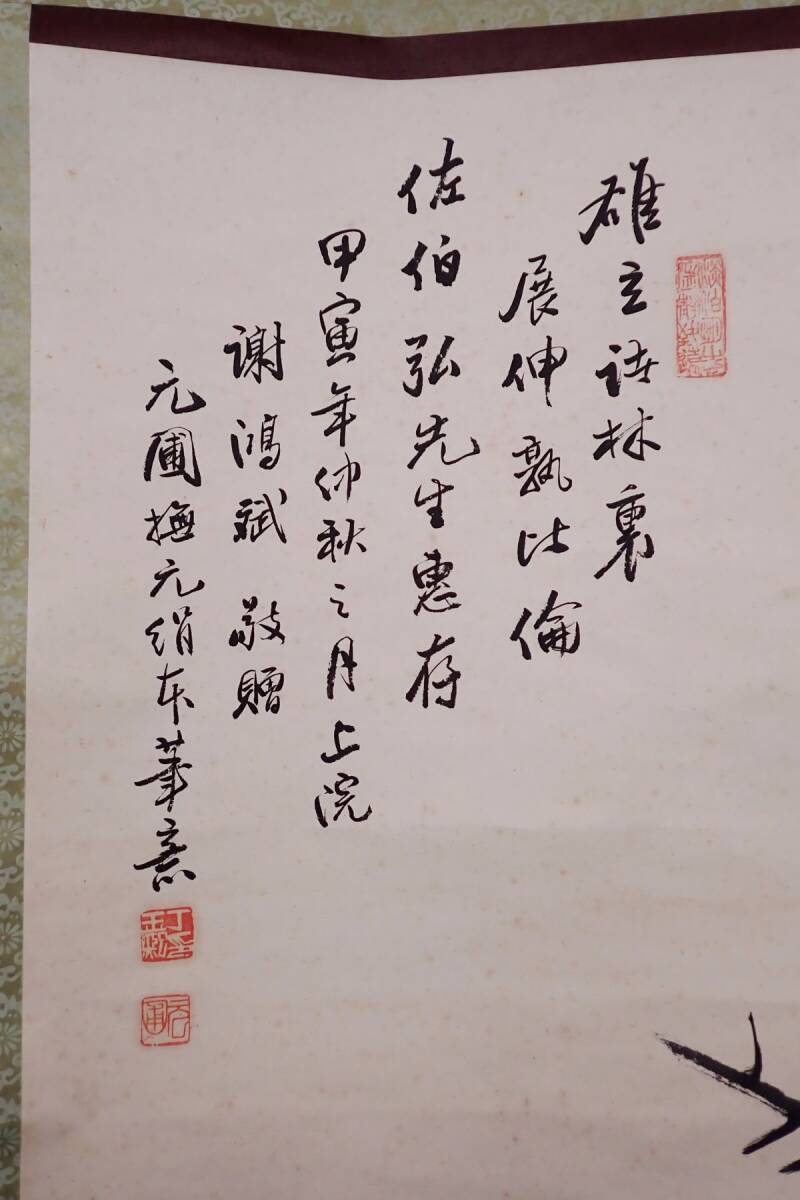 雄立詩林裏
展伸孰比倫
佐伯弘先生惠存
甲寅年仲秋之月上浣
謝鴻斌 敬贈
元圃撫元絹本筆意